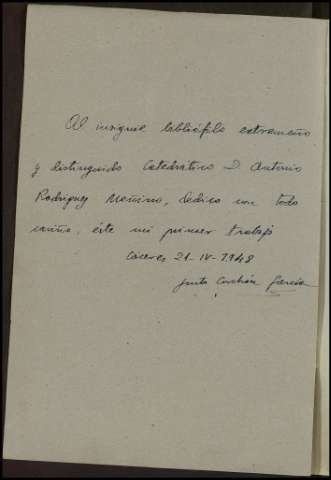 Al insigne bibliófilo extremeño
y distinguido Catedrático D. Antonio
Rodríguez Moñino, dedico con todo
cariño, éste mi primer trabajo
Cáceres 21-IV-1948
Justo Corchón García